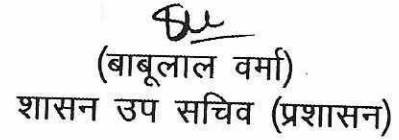 (बाबूलाल वर्मा)
शासन उप सचिव (प्रशासन)